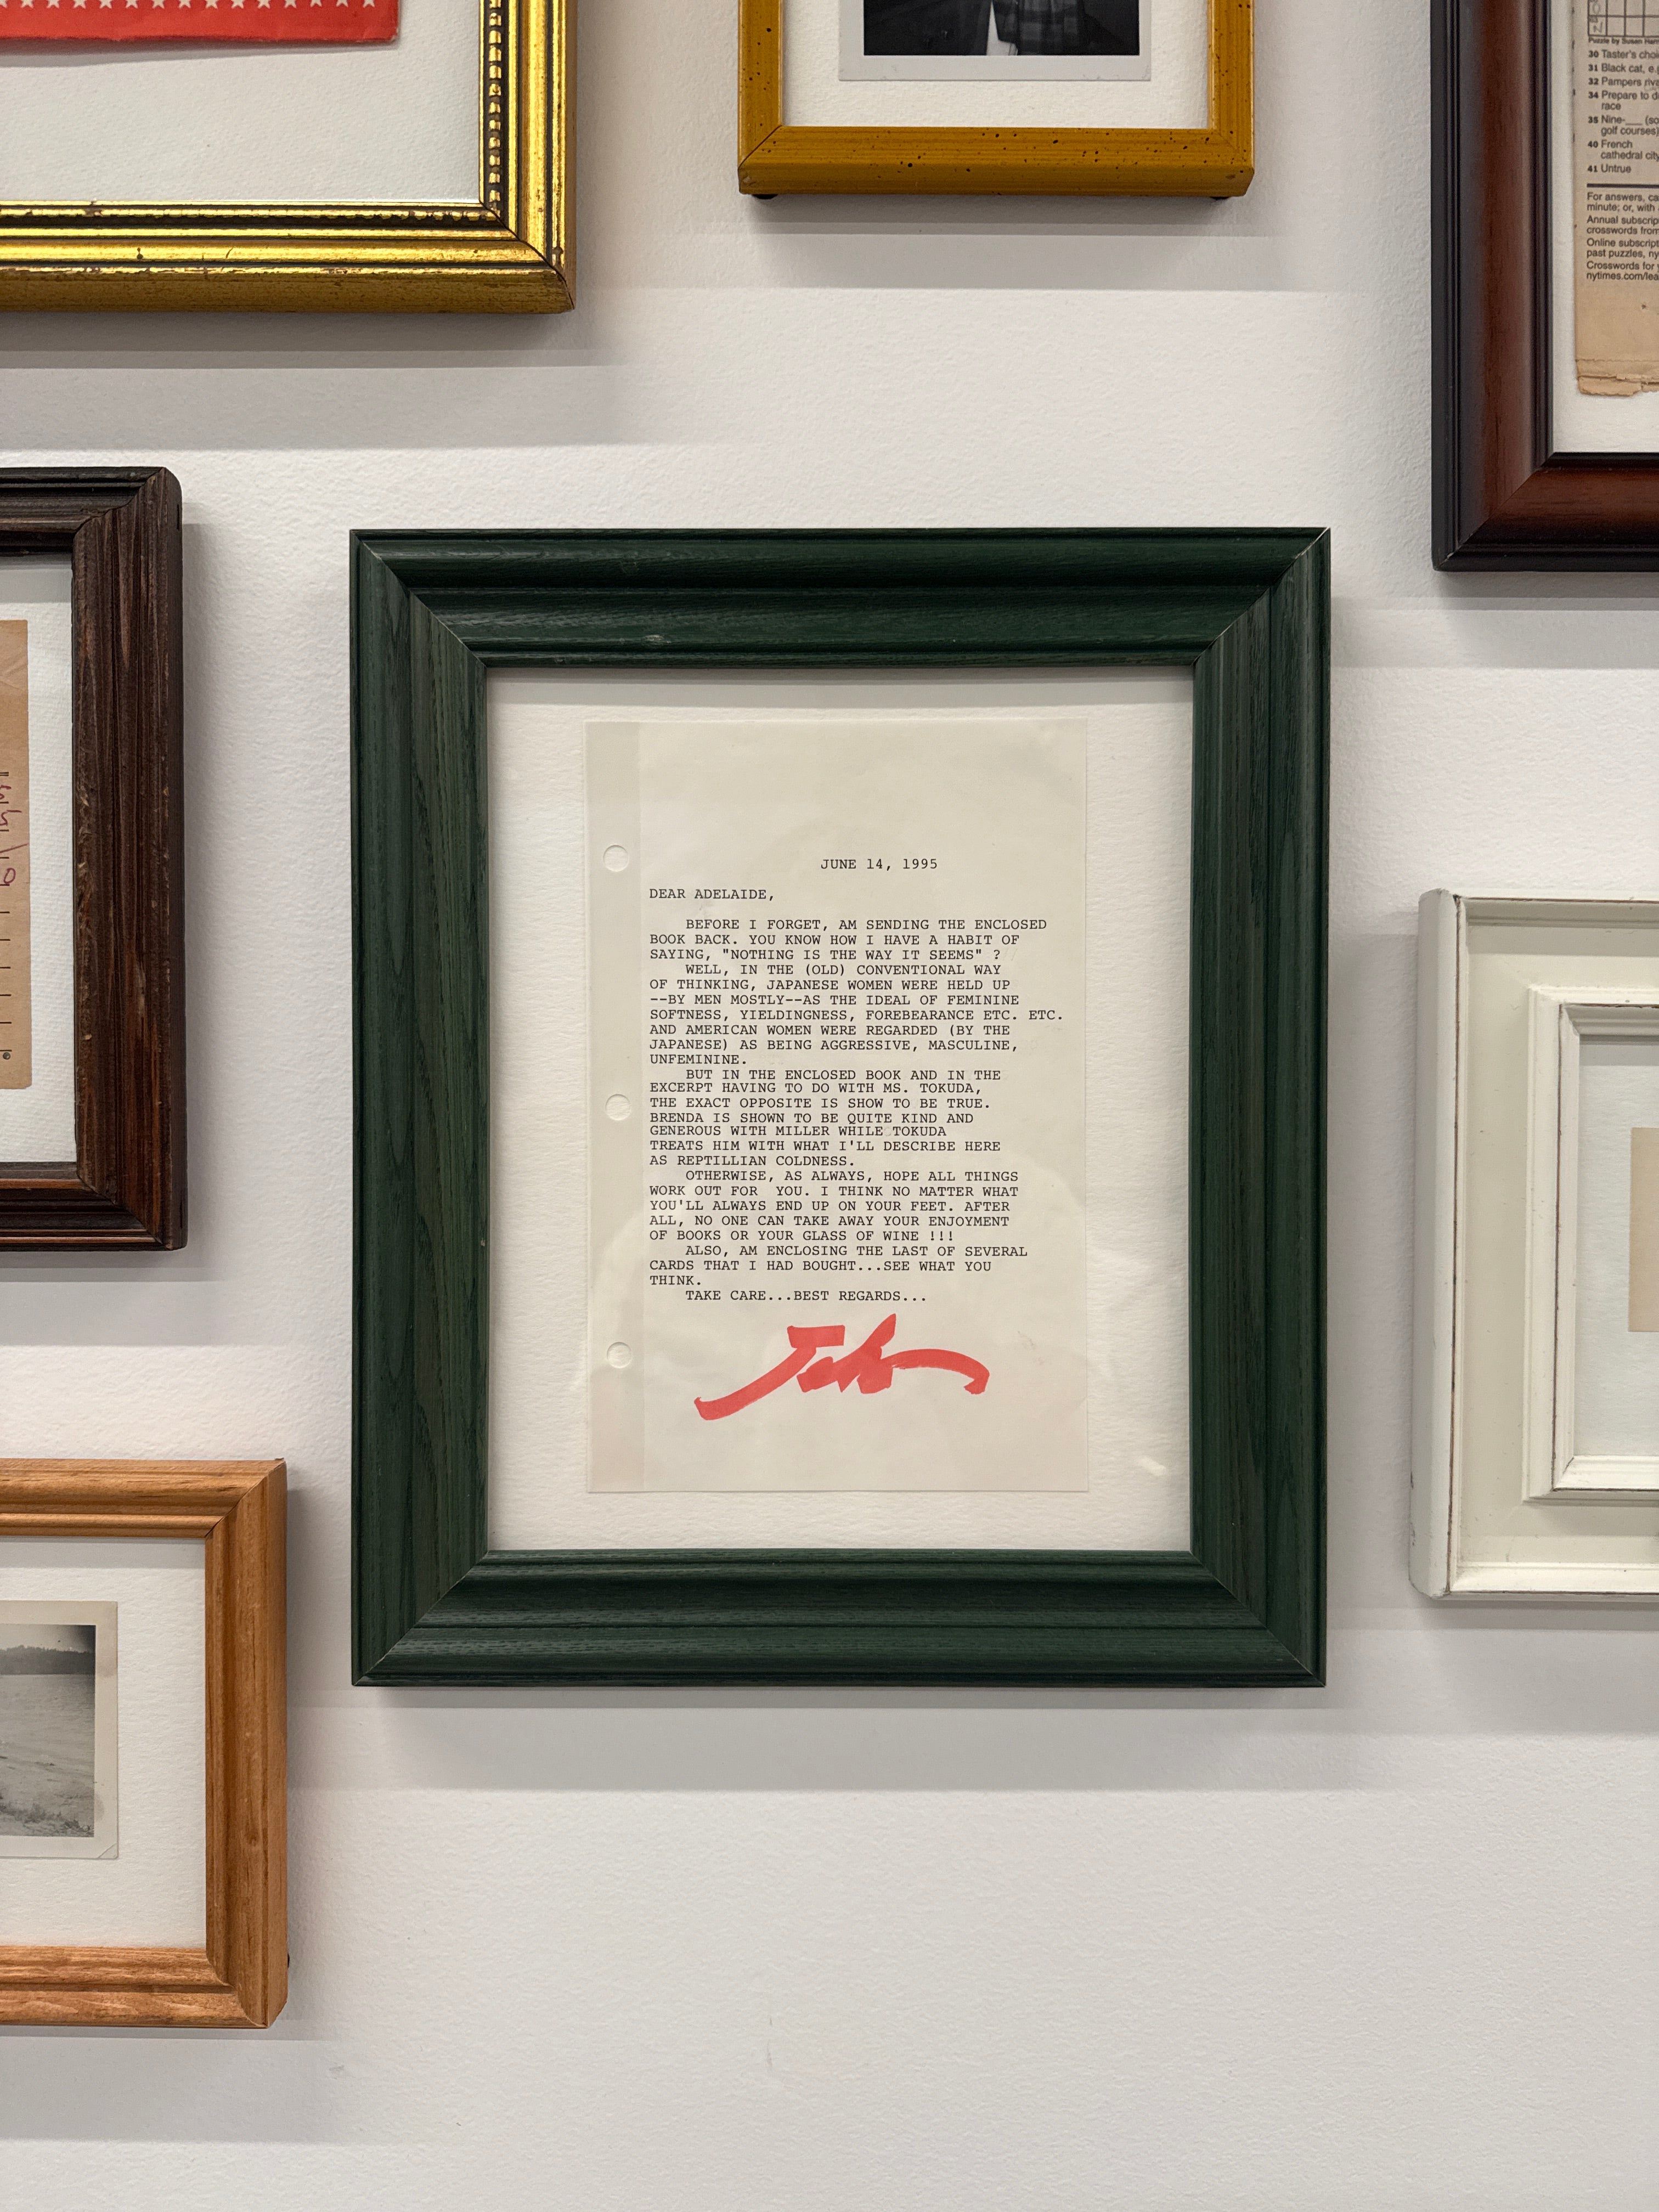 Puzzle by Susan
30 Taster's
31 Black cat, e.g
32 Pampers
34 Prepare to
race
35 Nine-___
golf courses)
40 French
cathedral city
41 Untrue
For answers,
minute; or, with
Annual
crosswords from
Online
past puzzles,
Crosswords for
nytimes.com/
JUNE 14, 1995
DEAR ADELAIDE,
BEFORE I FORGET, AM SENDING THE ENCLOSED
BOOK BACK. YOU KNOW HOW I HAVE A HABIT OF
SAYING, "NOTHING IS THE WAY IT SEEMS" ?
WELL, IN THE (OLD) CONVENTIONAL WAY
OF THINKING, JAPANESE WOMEN WERE HELD UP
--BY MEN MOSTLY--AS THE IDEAL OF FEMININE
SOFTNESS, YIELDINGNESS, FOREBEARANCE ETC. ETC.
AND AMERICAN WOMEN WERE REGARDED (BY THE
JAPANESE) AS BEING AGGRESSIVE, MASCULINE,
UNFEMININE.
BUT IN THE ENCLOSED BOOK AND IN THE
EXCERPT HAVING TO DO WITH MS. TOKUDA,
THE EXACT OPPOSITE IS SHOW TO BE TRUE.
BRENDA IS SHOWN TO BE QUITE KIND AND
GENEROUS WITH MILLER WHILE TOKUDA
TREATS HIM WITH WHAT I'LL DESCRIBE HERE
AS REPTILLIAN COLDNESS.
OTHERWISE, AS ALWAYS, HOPE ALL THINGS
WORK OUT FOR  YOU. I THINK NO MATTER WHAT
YOU'LL ALWAYS END UP ON YOUR FEET. AFTER
ALL, NO ONE CAN TAKE AWAY YOUR ENJOYMENT
OF BOOKS OR YOUR GLASS OF WINE !!!
ALSO, AM ENCLOSING THE LAST OF SEVERAL
CARDS THAT I HAD BOUGHT...SEE WHAT YOU
THINK.
TAKE CARE...BEST REGARDS...
John